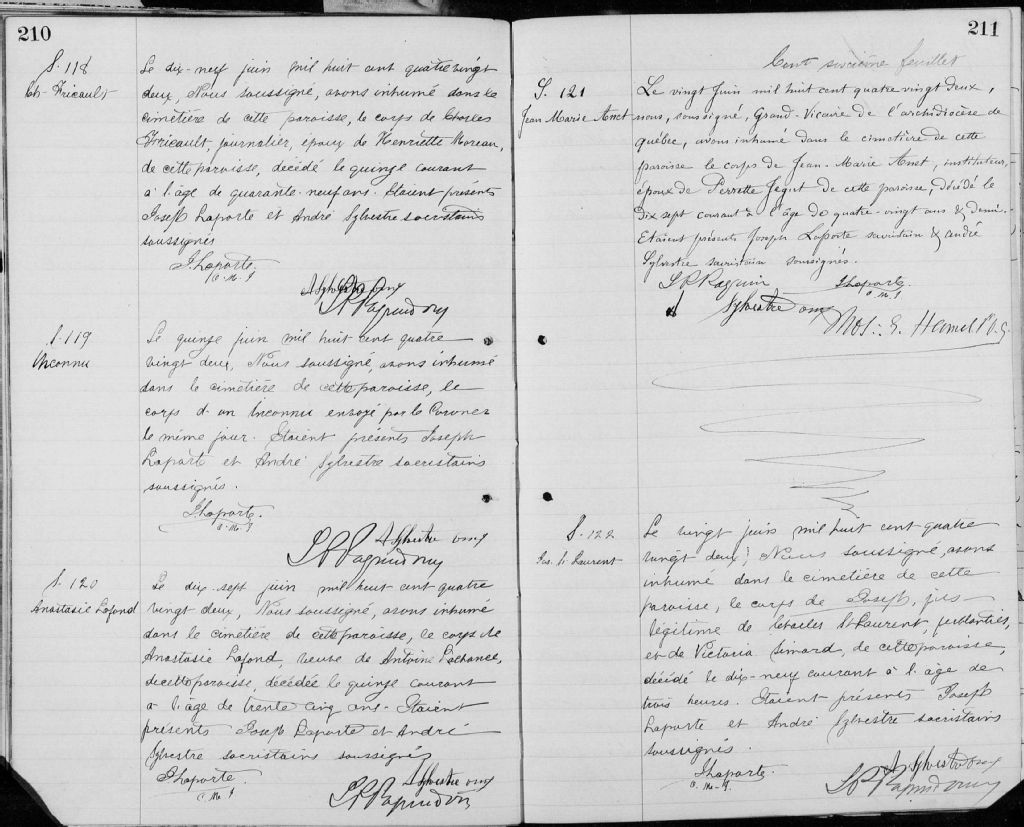 210
S. 118
Ch. Fricault
Le dix-neuf juin mil huit cent quatre vingt
deux, Nous soussigné, avons inhumé dans le
cimetière de cette paroisse, le corps de Charles
Fricault, journalier, époux de Henriette Moreau,
de cette paroisse, décédé le quinze courant
a l'âge de quarante-neuf ans. Etaient présents
Joseph Laporte et André Sylvestre sacristains
soussignés
J. Laporte.
A Sylvestre
S. 119
Inconnu
Le quinze juin mil huit cent quatre
vingt deux, Nous soussigné, avons inhumé
dans le cimetière de cette paroisse, le
corps d'un Inconnu envoyé par le Coroner
le même jour. Etaient présents Joseph
Laporte et André Sylvestre sacristains
soussignés.
J. Laporte.
A Sylvestre
S. 120
Anastasie Lafond
Le dix-sept juin mil huit cent quatre
vingt deux, Nous soussigné, avons inhumé
dans le cimetière de cette paroisse, le corps de
Anastasie Lafond, veuve de Antoine Lachance,
de cette paroisse, décédée le quinze courant
a l'âge de trente cinq ans. Etaient
présents Joseph Laporte et André
Sylvestre sacristains soussignés
J. Laporte.
A Sylvestre
211
Cent sixième feuillet
S. 121
Jean Marie Anet
Le vingt Juin mil huit cent quatre vingt deux,
nous, soussigné, Grand-Vicaire de l'archidiocèse de
Québec, avons inhumé dans le cimetière de cette
paroisse le corps de Jean-Marie Anet, instituteur,
époux de Perrette Jegut de cette paroisse, décédé le
dix sept courant à l'âge de quatre-vingt ans & demi.
Etaient présents Joseph Laporte sacristain & andré
Sylvestre sacristain soussignés.
J. Laporte.
A Sylvestre
E. Hamel
S. 122
Jos. St Laurent
Le vingt juin mil huit cent quatre
vingt deux, Nous soussigné, avons
inhumé dans le cimetière de cette
paroisse, le corps de Joseph, fils
légitime de St Laurent
et de Victoria Simard, de cette paroisse,
décédé le dix-neuf courant à l'âge de
trois heures. Etaient présents Joseph
Laporte et André Sylvestre sacristains
soussignés.
J. Laporte.
A Sylvestre